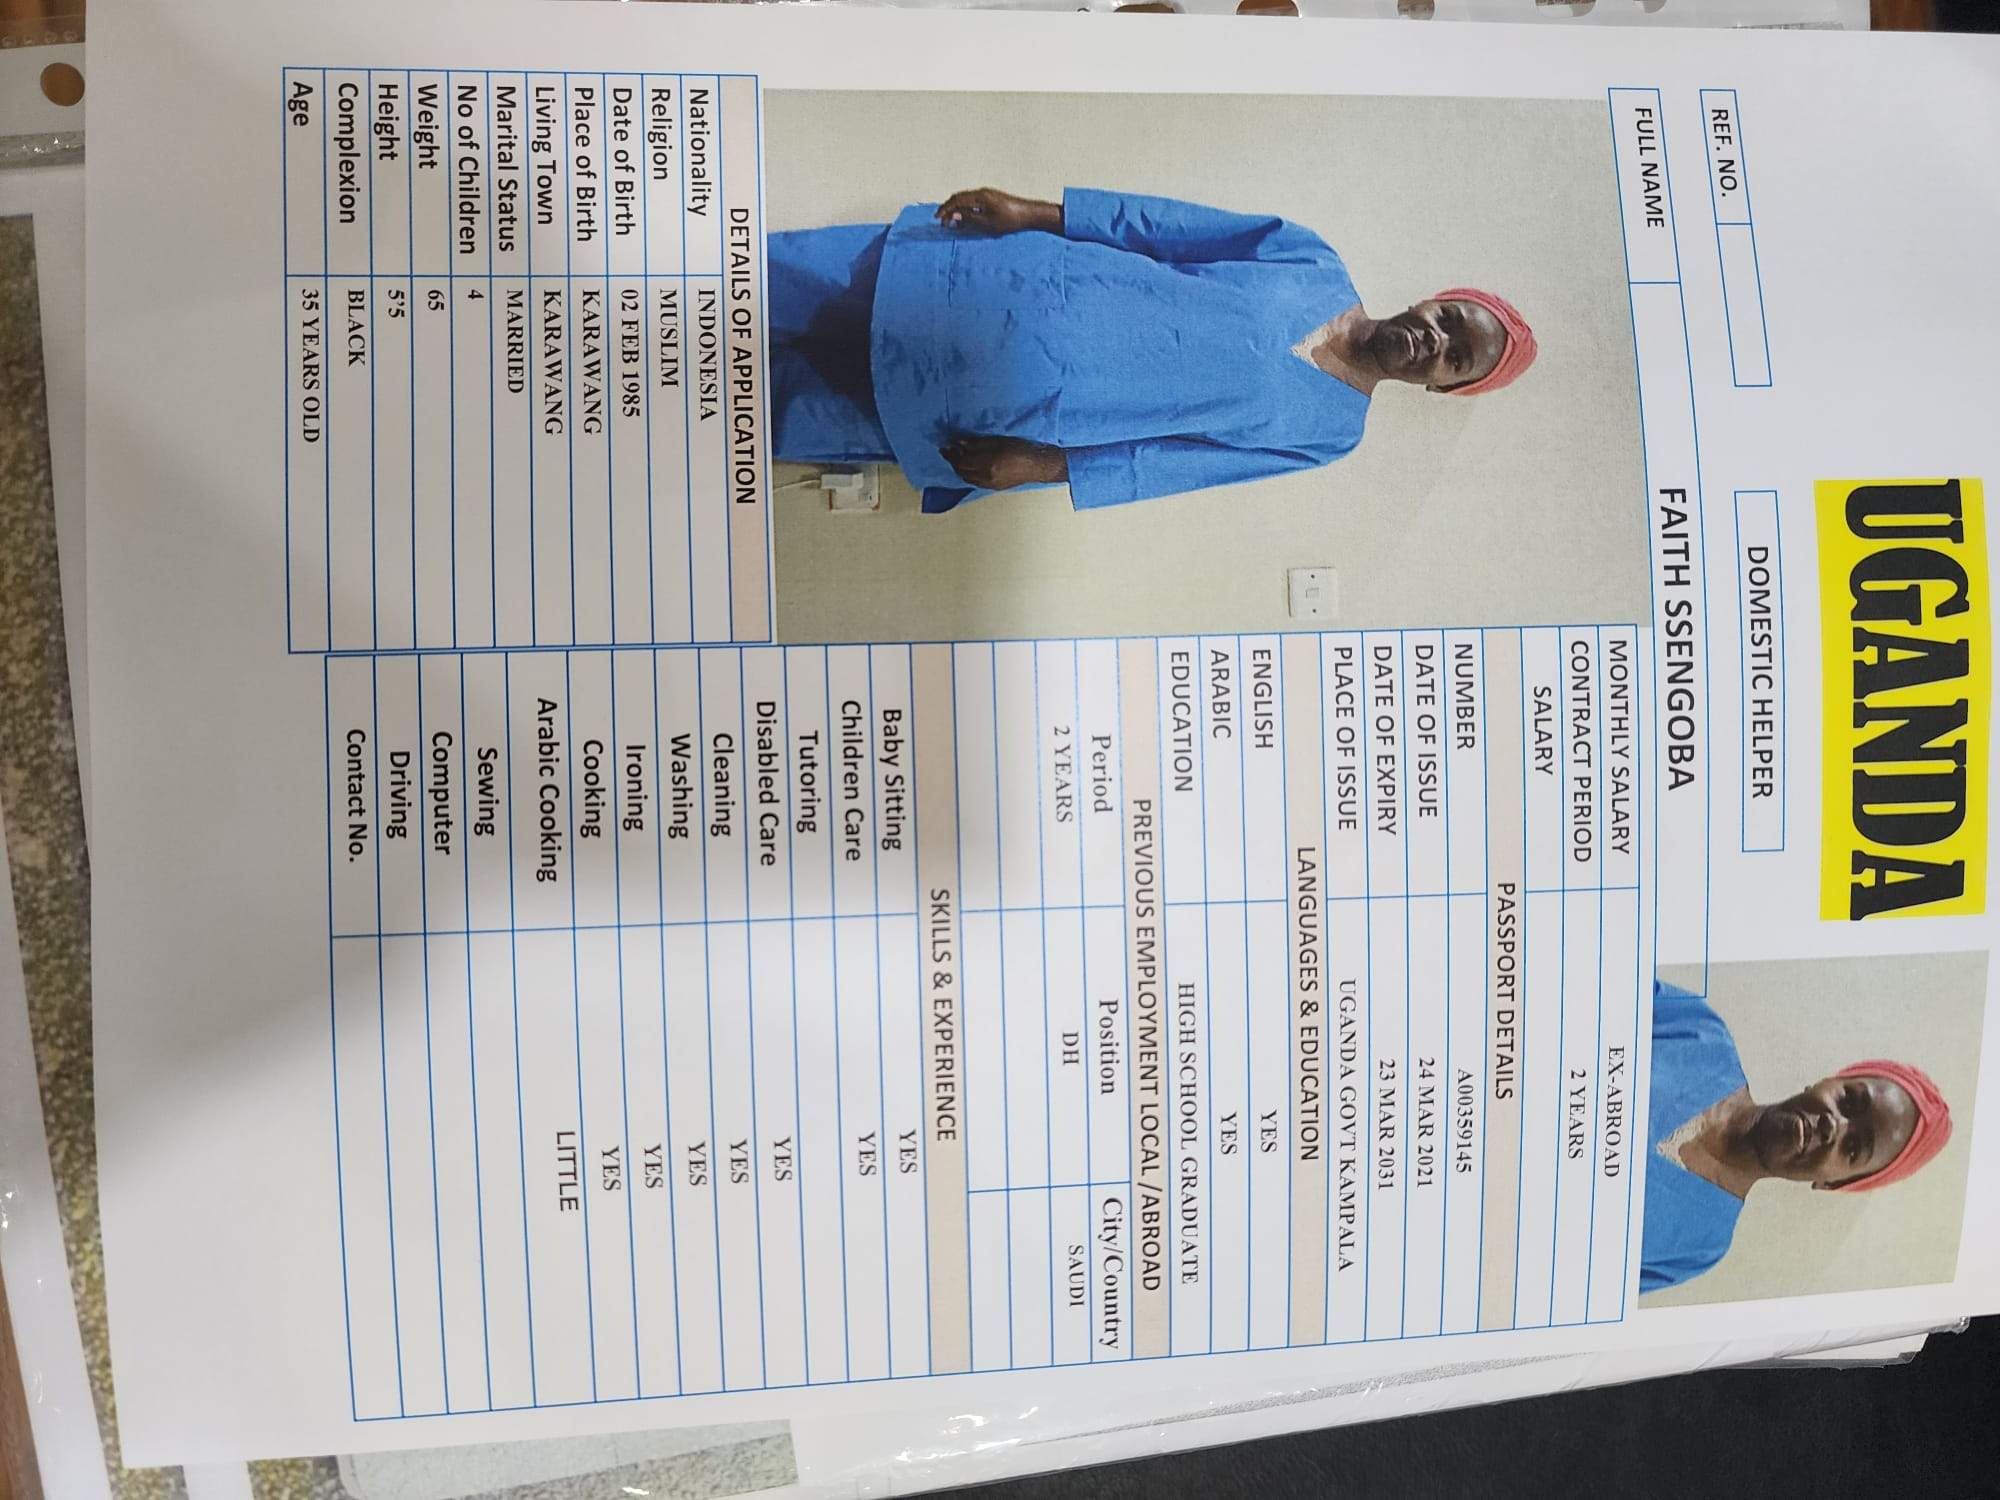 UGANDA
REF. NO.
DOMESTIC HELPER
FULL NAME FAITH SSENGOBA
MONTHLY SALARY EX-ABROAD
CONTRACT PERIOD 2 YEARS
SALARY
PASSPORT DETAILS
NUMBER A00359145
DATE OF ISSUE 24 MAR 2021
DATE OF EXPIRY 23 MAR 2031
PLACE OF ISSUE UGANDA GOVT KAMPALA
LANGUAGES & EDUCATION
ENGLISH YES
ARABIC YES
EDUCATION HIGH SCHOOL GRADUATE
PREVIOUS EMPLOYMENT LOCAL /ABROAD
Period Position City/Country
2 YEARS DH SAUDI
DETAILS OF APPLICATION
Nationality INDONESIA
Religion MUSLIM
Date of Birth 02 FEB 1985
Place of Birth KARAWANG
Living Town KARAWANG
Marital Status MARRIED
No of Children 4
Weight 65
Height 5'5
Complexion BLACK
Age 35 YEARS OLD
SKILLS & EXPERIENCE
Baby Sitting YES
Children Care YES
Tutoring
Disabled Care YES
Cleaning YES
Washing YES
Ironing YES
Cooking YES
Arabic Cooking LITTLE
Sewing
Computer
Driving
Contact No.